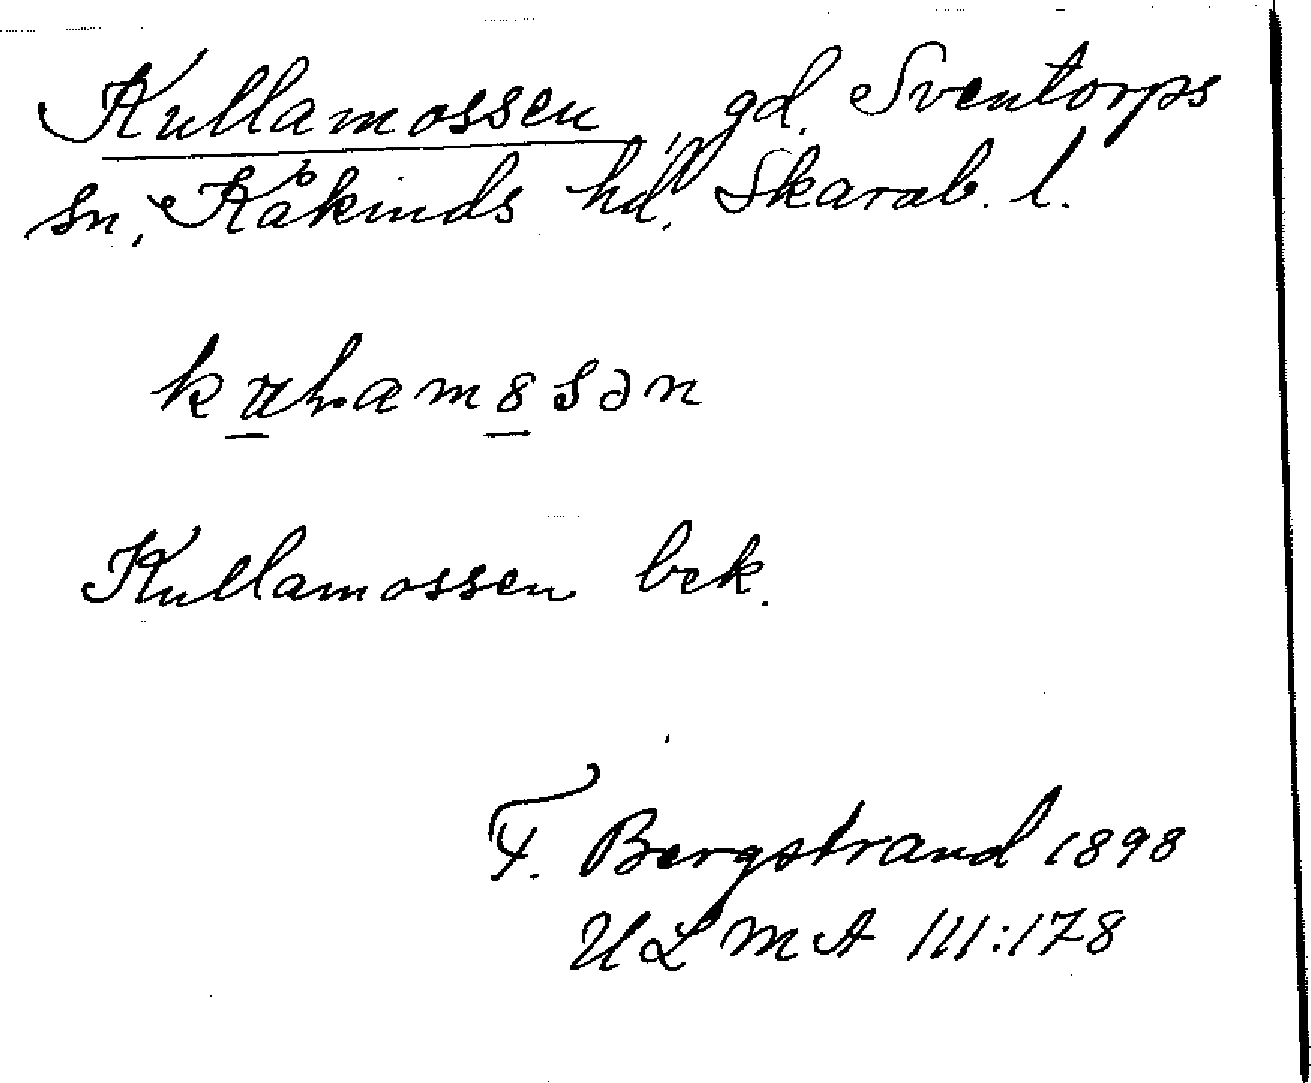 Kullamossen, gd. Sventorps
sn, Kåkinds hd. Skarab. l.
Kullamossen bek.
F. Bergstrand 1898
ULMA 111:178